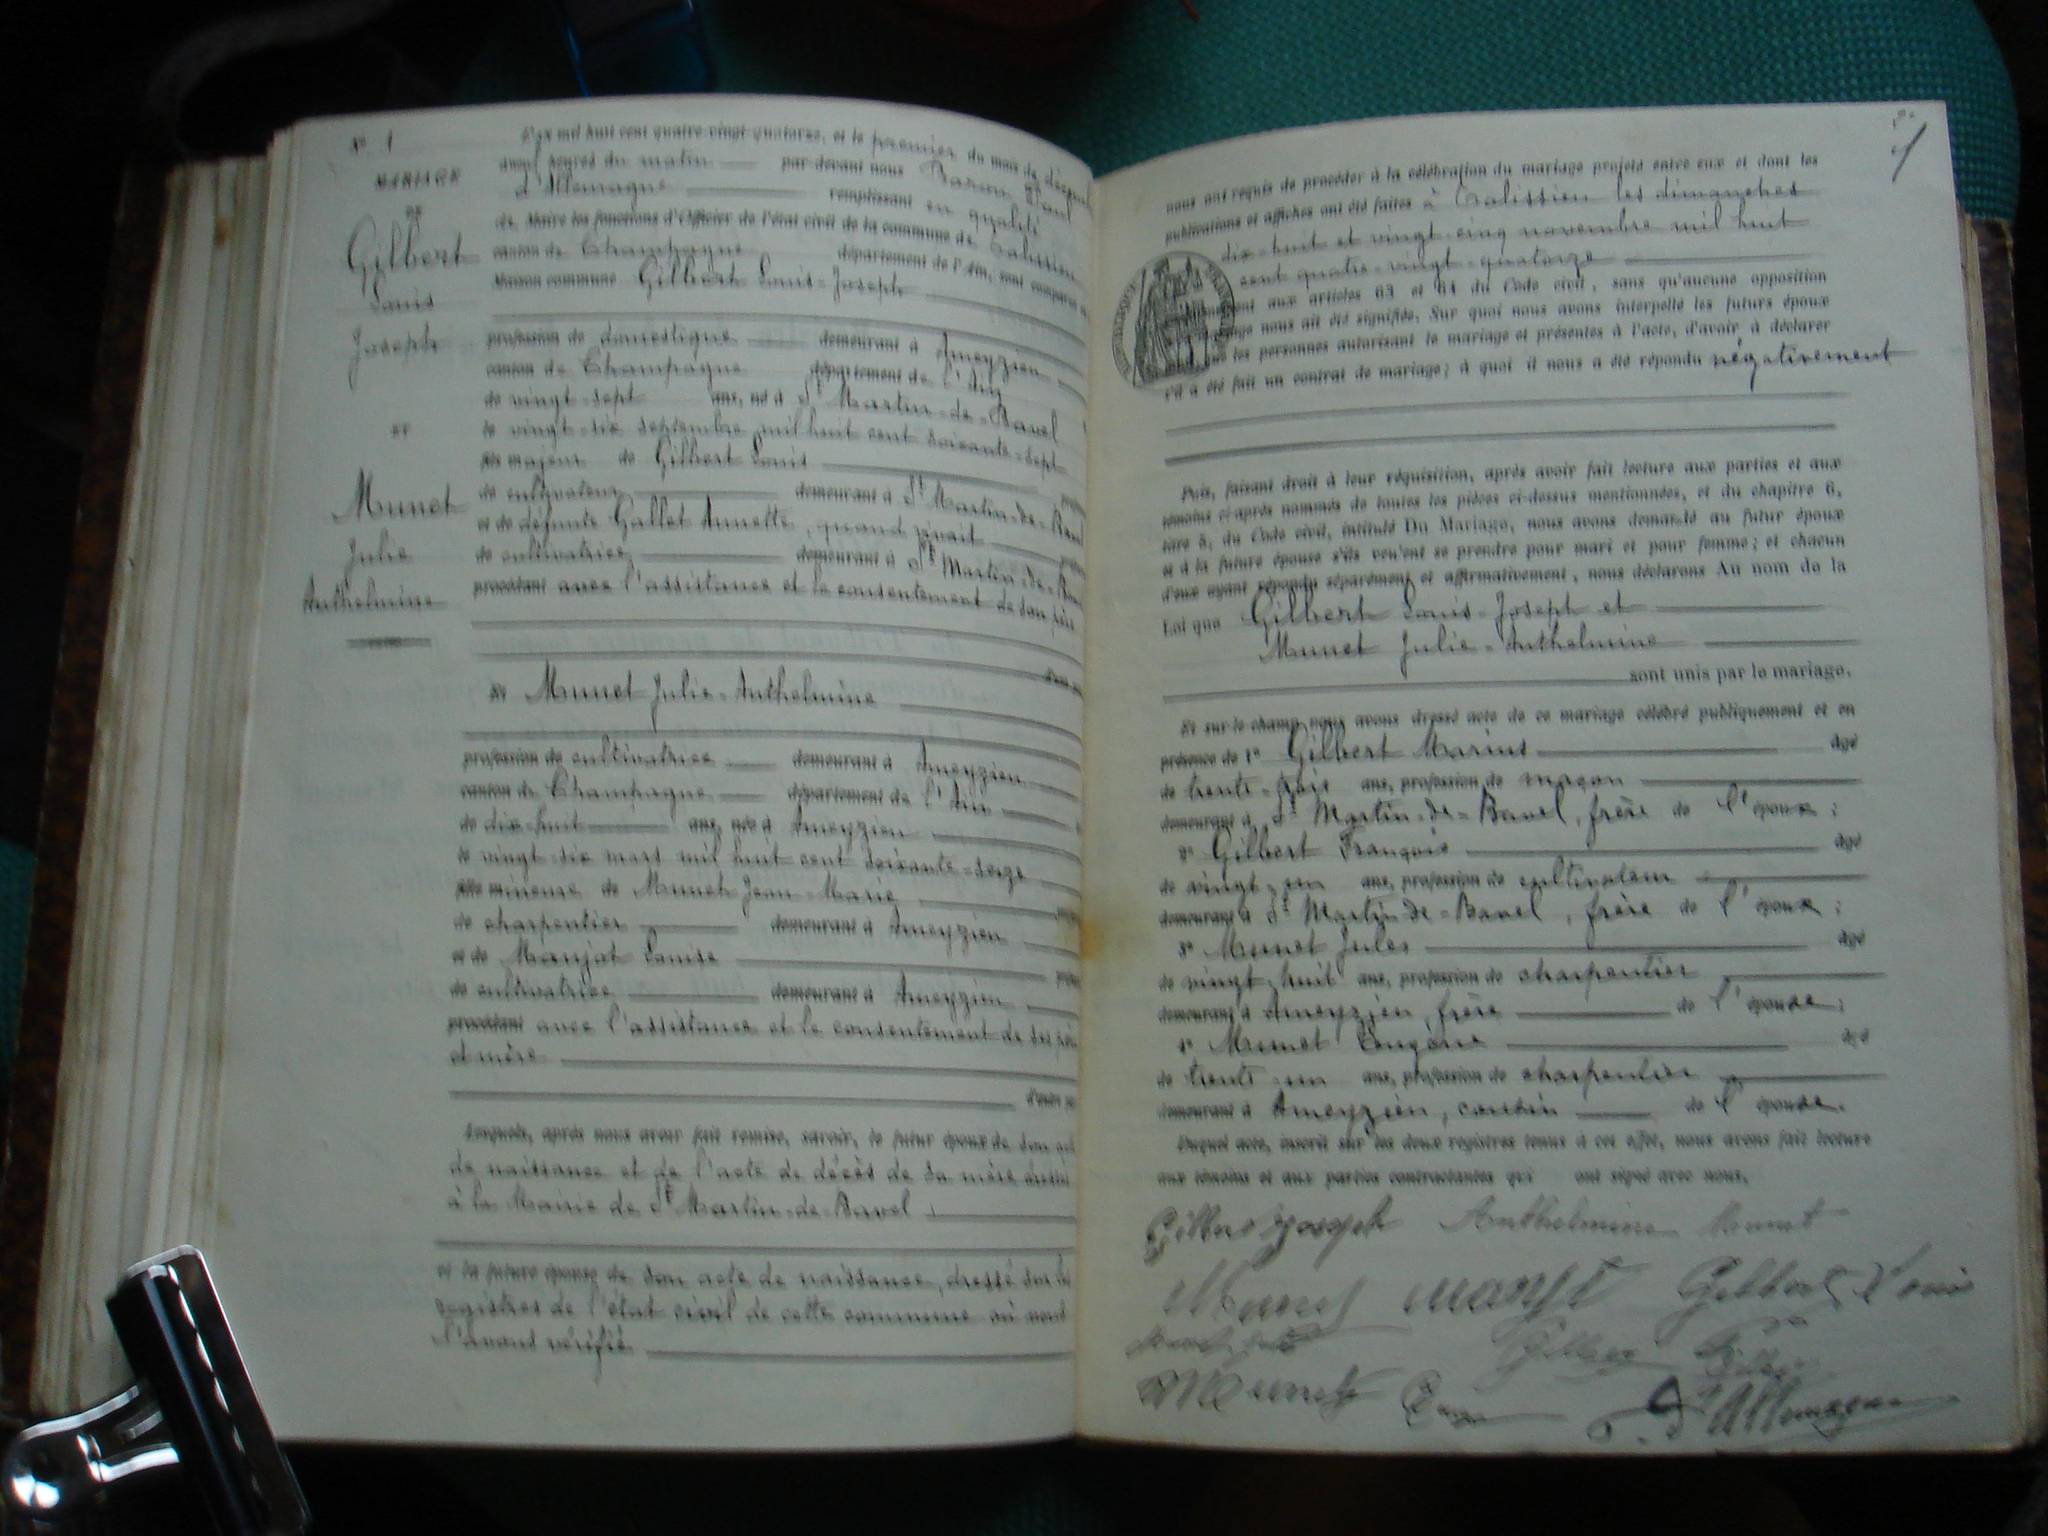 N° 1
MARIAGE
DE
Gilbert
Louis
Joseph
ET
Munet
Julie
Anthelmine
L'an mil huit cent quatre-vingt-quatorze, et le premier du mois de décembre
heures du matin par-devant nous Baron Paul
d'Allemagne remplissant en qualité
de Maire les fonctions d'Officier de l'état civil de la commune de Talissieu
canton de Champagne département de l'Ain, sont comparus en
Maison commune Gilbert Louis-Joseph
profession de domestique demeurant à Ameyzieu
canton de Champagne département de l'Ain
de vingt-sept ans, né à St Martin-de-Bavel
le vingt-six septembre mil huit cent soixante-sept
fils majeur de Gilbert Louis
de cultivateur demeurant à St Martin-de-Bavel
et de défunte Gallet Annette, quand vivait
de cultivatrice demeurant à St Martin-de-Bavel
procédant avec l'assistance et le consentement de son père
ET Munet Julie-Anthelmine
profession de cultivatrice demeurant à Ameyzieu
canton de Champagne département de l'Ain
de dix-huit ans, née à Ameyzieu
le vingt-six mars mil huit cent soixante-seize
fille mineure de Munet Jean-Marie
de charpentier demeurant à Ameyzieu
et de Manjot Louise
de cultivatrice demeurant à Ameyzieu
procédant avec l'assistance et le consentement de ses père
et mère
d'autre part
Lesquels, après nous avoir fait remise, savoir, le futur époux de son acte
de naissance et de l'acte de décès de sa mère dressés
à la Mairie de St Martin-de-Bavel
et la future épouse de son acte de naissance, dressé sur les
registres de l'état civil de cette commune où nous
l'avons vérifié
nous ont requis de procéder à la célébration du mariage projeté entre eux et dont les
publications et affiches ont été faites à Talissieu les dimanches
dix-huit et vingt-cinq novembre mil huit
cent quatre-vingt-quatorze
aux articles 63 et 64 du Code civil, sans qu'aucune opposition
nous ait été signifiée. Sur quoi nous avons interpellé les futurs époux
les personnes autorisant le mariage et présentes à l'acte, d'avoir à déclarer
s'il a été fait un contrat de mariage; à quoi il nous a été répondu négativement
Puis, faisant droit à leur réquisition, après avoir fait lecture aux parties et aux
témoins ci-après nommés de toutes les pièces ci-dessus mentionnées, et du chapitre 6,
titre 5, du Code civil, intitulé Du Mariage, nous avons demandé au futur époux
et à la future épouse s'ils veulent se prendre pour mari et pour femme; et chacun
d'eux ayant répondu séparément et affirmativement, nous déclarons Au nom de la
Loi que Gilbert Louis-Joseph et
Munet Julie-Anthelmine
sont unis par le mariage.
Et sur-le-champ nous avons dressé acte de ce mariage célébré publiquement et en
présence de 1° Gilbert Marius âgé
de trente-trois ans, profession de maçon
demeurant à St Martin-de-Bavel, frère de l'époux;
2° Gilbert François âgé
de vingt-un ans, profession de cultivateur
demeurant à St Martin-de-Bavel, frère de l'époux;
3° Munet Jules âgé
de vingt-huit ans, profession de charpentier
demeurant à Ameyzieu, frère de l'épouse;
4° Munet Eugène âgé
de trente-un ans, profession de charpentier
demeurant à Ameyzieu, cousin de l'épouse.
Duquel acte, inscrit sur les deux registres tenus à cet effet, nous avons fait lecture
aux témoins et aux parties contractantes qui ont signé avec nous.
Gilbert Joseph Anthelmine Munet
Munet manjot Gilbert Louis
Gilbert
Munet Eug P. d'Allemagne